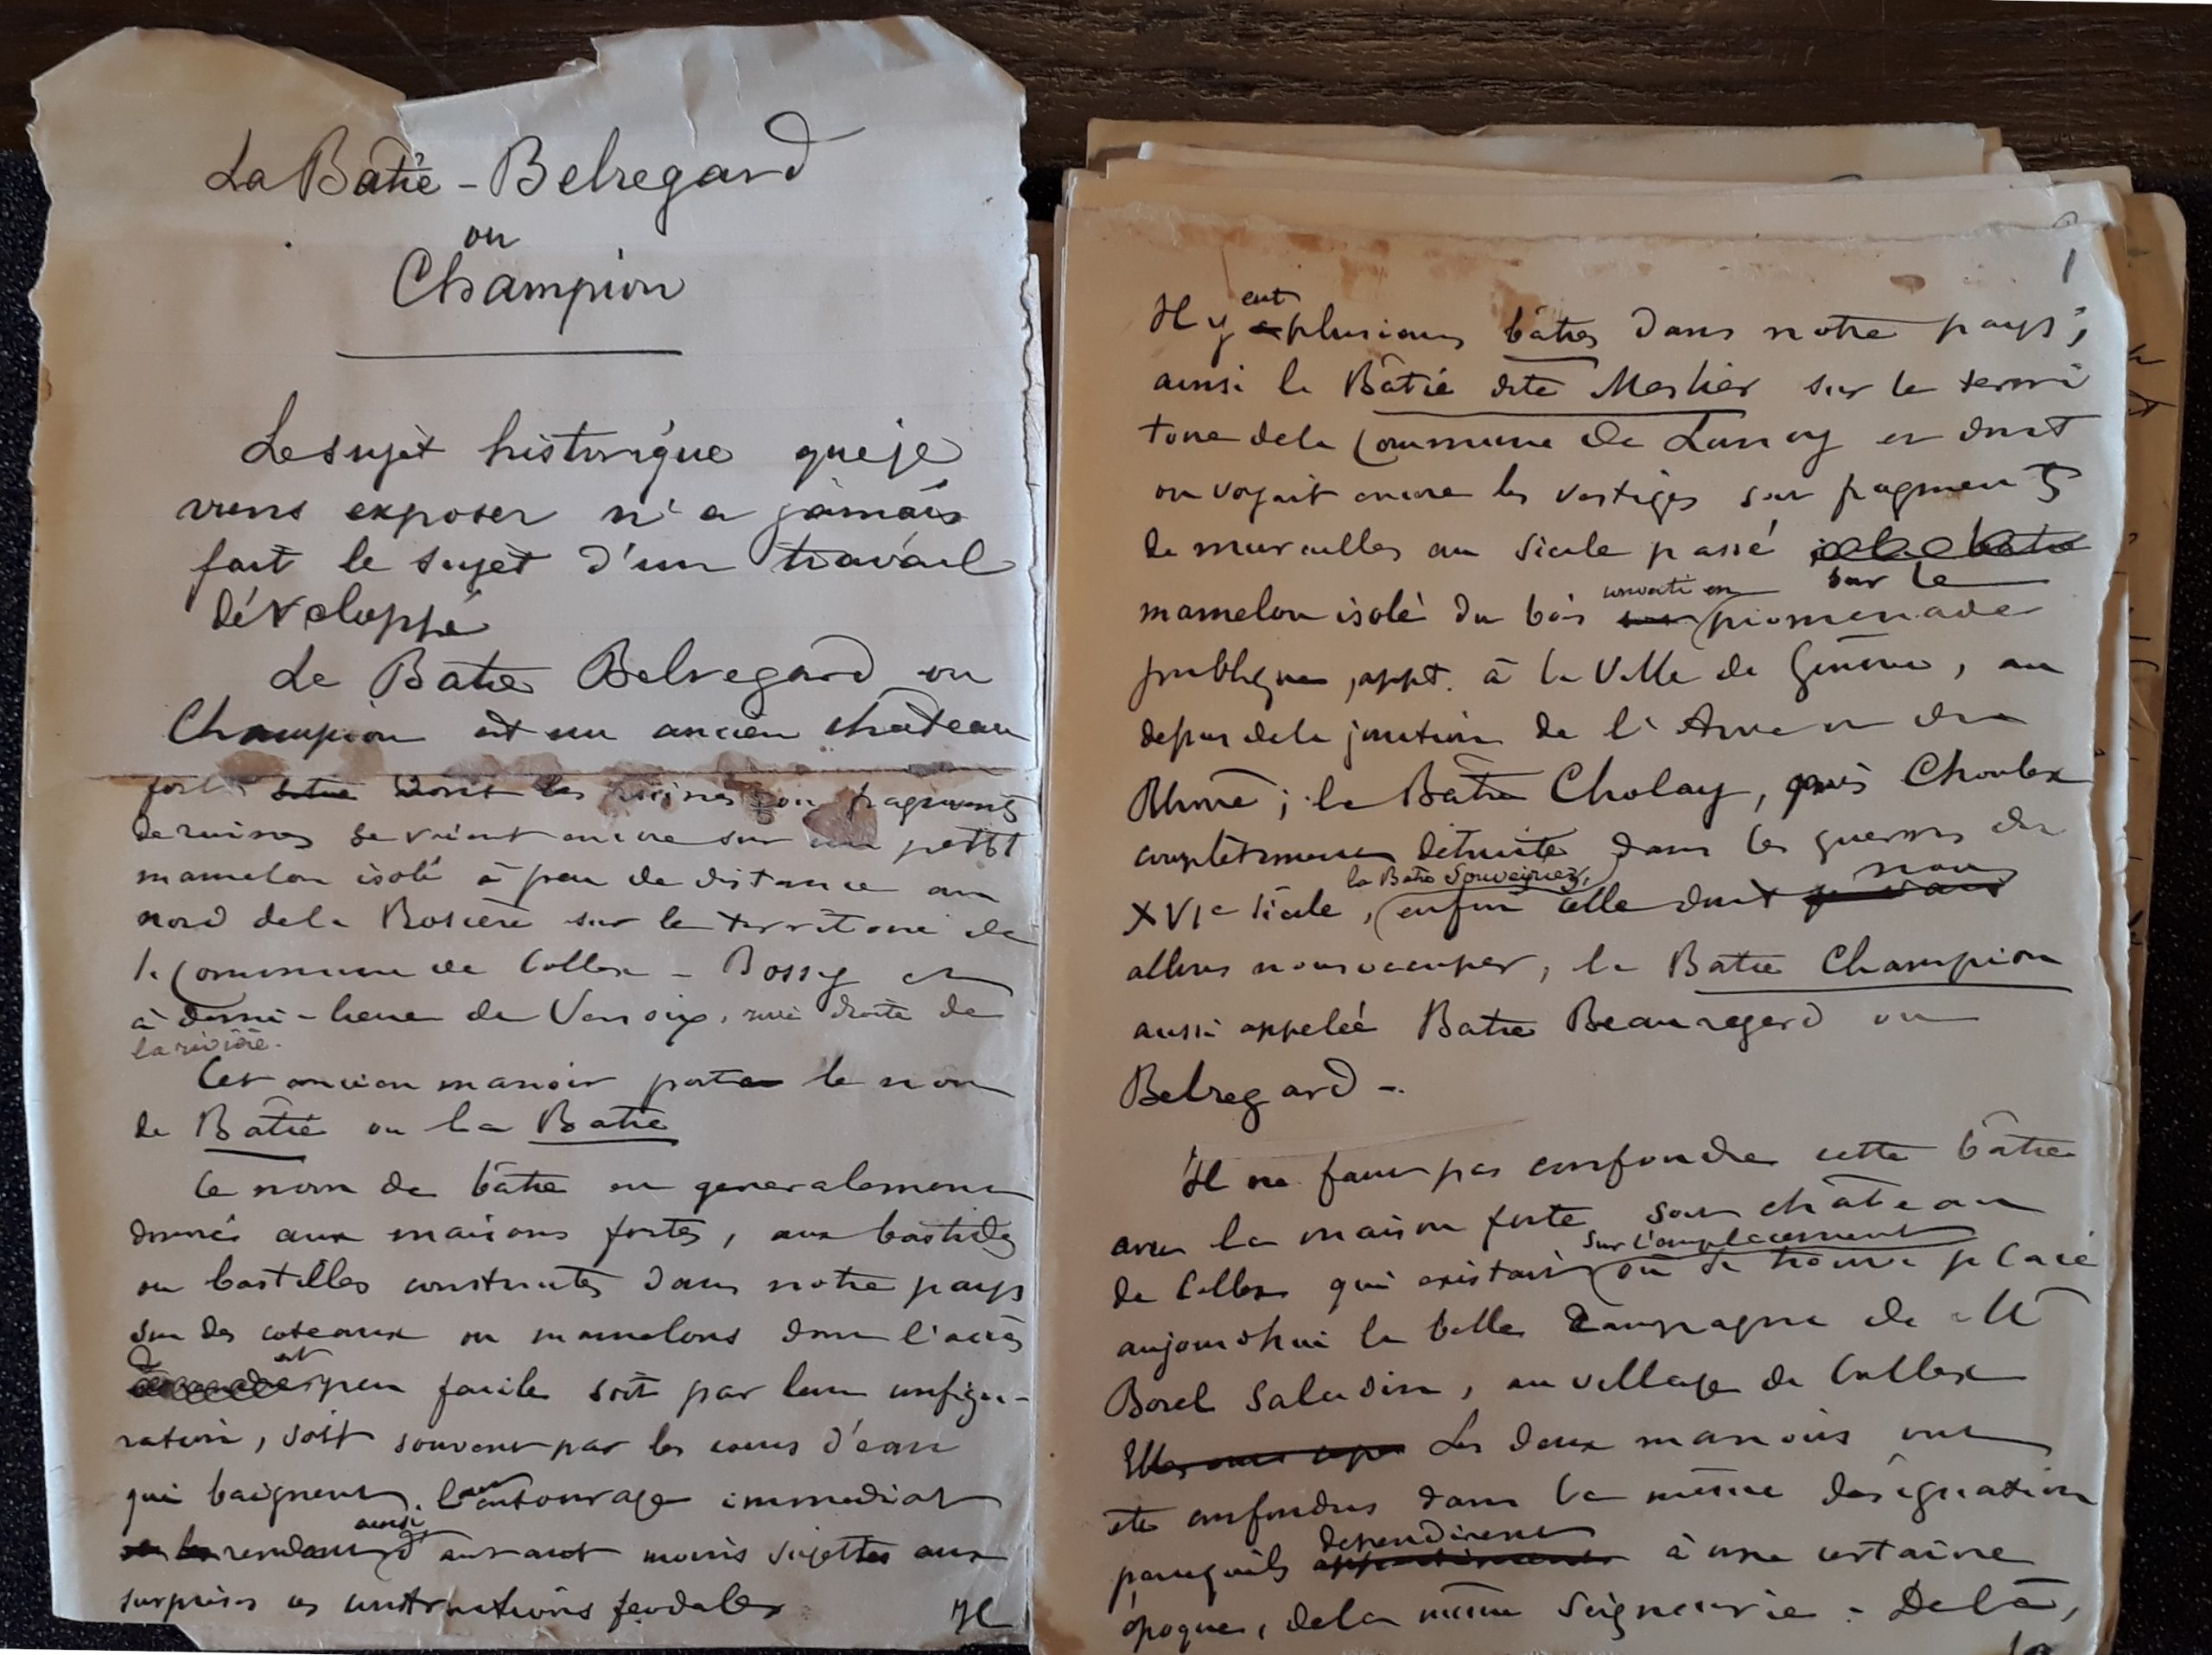 La Batie - Belregard
ou
Champion
Le sujet historique que je
viens exposer n'a jamais
fait le sujet d'un travail
développé
La Batie Belregard ou
Champion est un ancien château
fort dont les ruines ou fragments
de ruines se voient encore sur un petit
mamelon isolé à peu de distance au
nord de la Bosière sur le territoire de
la Commune de Collex - Bossy et
à demi-lieue de Versoix, rive droite de
la rivière.
Cet ancien manoir porte le nom
de Bâtie ou la Batie
Ce nom de bâtie est généralement
donné aux maisons fortes, aux bastides
ou bastilles construites dans notre pays
sur des coteaux ou mamelons dont l'accès
est peu facile soit par leur configu-
ration, soit souvent par les cours d'eau
qui baignent l'entourage immédiat
rendant ainsi d'autant moins sujettes aux
surprises ces constructions féodales
Il
1
Il y eut plusieurs bâties dans notre pays ;
ainsi la Bâtie dite Meslier sur le terri
toire de la Commune de Lancy et dont
on voyait encore les vestiges sur fragments
de murailles au siècle passé sur le
mamelon isolé du bois converti en promenade
publique, appt. à la Ville de Genève, au
dessus de la jonction de l'Arve et du
Rhône ; la Bâtie Cholay, près Choulex
complètement détruite dans les guerres du
XVIe siècle, la Batie Souveyriez, enfin celle dont nous
allons nous occuper, la Batie Champion
aussi appelée Batie Beauregard ou
Belregard -.
Il ne faut pas confondre cette bâtie
avec la maison forte soit château
de Collex qui existait sur l'emplacement où se trouve placé
aujourd'hui la belle Campagne de Mr
Borel Saladin, au village de Collex
Les deux manoirs ont
été confondus dans la même désignation
parcequ'ils dépendirent à une certaine
époque, de la même Seigneurie - De là,
la